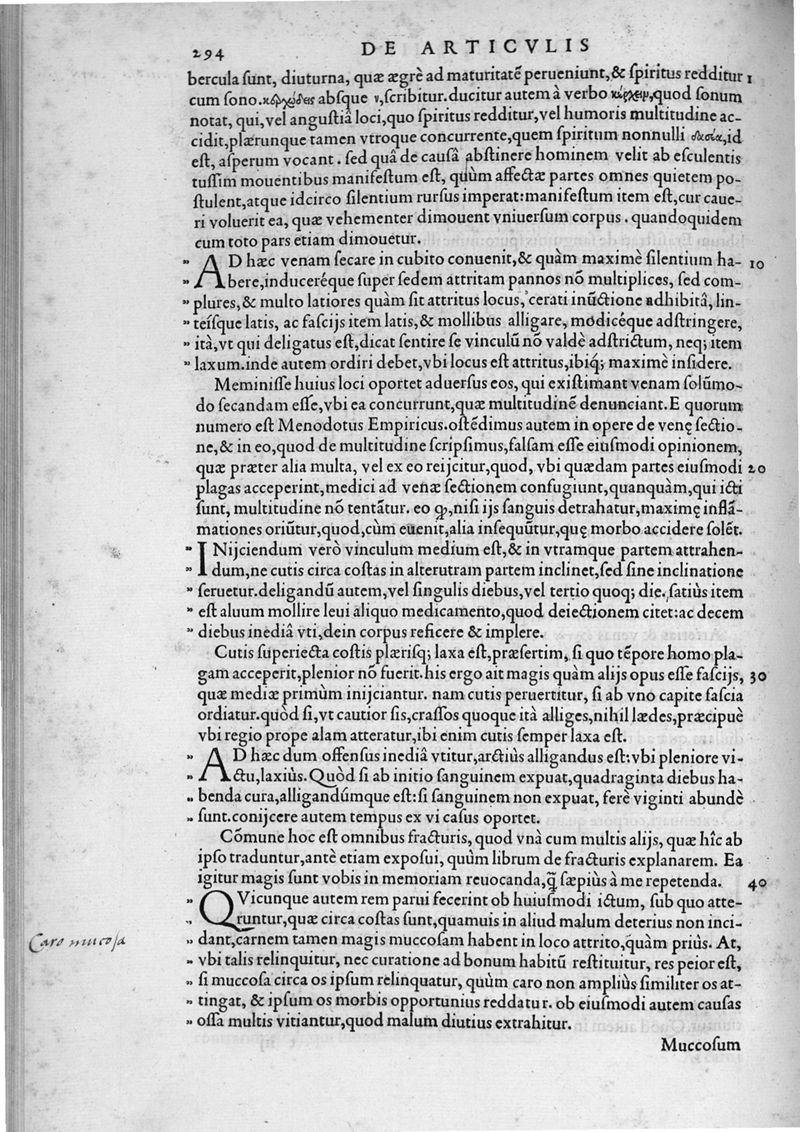 294 DE ARTICVLIS
bercula ſunt, diuturna, quæ ægrè ad maturitatẽ perueniunt,& ſpiritus redditur 1
cum ſono. abſque ν,ſcribitur.ducitur autem à verbo quod ſonum
notat, qui,vel anguſtiâ loci,quo ſpiritus redditur,vel humoris multitudine ac-
cidit,plærunque tamen vtroque concurrente,quem ſpiritum nonnulli id
eſt, aſperum vocant. ſed quâ de cauſâ abſtinere hominem velit ab eſculentis
tuſſim mouentibus manifeſtum eſt, quùm affectæ partes omnes quietem po-
ſtulent,atque idcirco ſilentium rurſus imperat:manifeſtum item eſt,cur caue-
ri voluerit ea, quæ vehementer dimouent vniuerſum corpus. quandoquidem
cum toto pars etiam dimouetur.
" AD hæc venam ſecare in cubito conuenit,& quàm maximè ſilentium ha- 10
" bere,inducerẽque ſuper ſedem attritam pannos nõ multiplices, ſed com-
" plures,& multo latiores quàm ſit attritus locus, cerati inũctione adhibitâ, lin-
" teíſque latis, ac faſcijs item latis,& mollibus alligare, modicéque adſtringere,
" ità,vt qui deligatus eſt,dicat ſentire ſe vinculũ nõ valdè adſtrictum, neq; item
" laxum.inde autem ordiri debet,vbi locus eſt attritus,ibiq́; maximè inſidere.
Meminiſſe huius loci oportet aduerſus eos, qui exiſtimant venam ſolùmo-
do ſecandam eſſe,vbi ea concurrunt,quæ multitudinẽ denunciant.E quorum
numero eſt Menodotus Empiricus.oſtẽdimus autem in opere de venę ſectio-
ne,& in eo,quod de multitudine ſcripſimus,falſam eſſe eiuſmodi opinionem,
quæ præter alia multa, vel ex eo reijcitur,quod, vbi quædam partes eiuſmodi 20
plagas acceperint,medici ad venæ ſectionem confugiunt,quanquàm,qui icti
ſunt, multitudine nõ tentãtur. eo ꝙ,niſi ijs ſanguis detrahatur,maximę inflã-
mationes oriũtur,quod,cùm euenit,alia inſequũtur,quę morbo accidere ſolẽt.
" INijciendum verò vinculum medium eſt,& in vtramque partem attrahen-
" dum,ne cutis circa coſtas in alterutram partem inclinet,ſed ſine inclinatione
" ſeruetur.deligandũ autem,vel ſingulis diebus,vel tertio quoq; die. ſatiùs item
" eſt aluum mollire leui aliquo medicamento,quod deiectionem citet:ac decem
" diebus inediâ vti,dein corpus reficere & implere.
Cutis ſuperiecta coſtis plæriſq; laxa eſt,præſertim, ſi quo tẽpore homo pla-
gam acceperit,plenior nõ fuerit.his ergo ait magis quàm alijs opus eſſe faſcijs, 30
quæ mediæ primùm inijciantur. nam cutis peruertitur, ſi ab vno capite faſcia
ordiatur.quòd ſi,vt cautior ſis,craſſos quoque ità alliges,nihil lædes,præcipuè
vbi regio prope alam atteratur,ibi enim cutis ſemper laxa eſt.
" AD hæc dum offenſus inediâ vtitur,arctiùs alligandus eſt:vbi pleniore vi-
" ctu,laxiùs.Quòd ſi ab initio ſanguinem expuat,quadraginta diebus ha-
" benda cura,alligandúmque eſt:ſi ſanguinem non expuat, ferè viginti abundè
" ſunt.conijcere autem tempus ex vi caſus oportet.
Cõmune hoc eſt omnibus fracturis, quod vnà cum multis alijs, quæ hîc ab
ipſo traduntur,antè etiam expoſui, quùm librum de fracturis explanarem. Ea
igitur magis ſunt vobis in memoriam reuocanda,q̃ ſæpiùs à me repetenda. 40
" QVicunque autem rem parui fecerint ob huiuſmodi ictum, ſub quo atte-
" runtur,quæ circa coſtas ſunt,quamuis in aliud malum deterius non inci-
Caro mucosa " dant,carnem tamen magis muccoſam habent in loco attrito,quàm priùs. At,
" vbi talis relinquitur, nec curatione ad bonum habitũ reſtituitur, res peior eſt,
" ſi muccoſa circa os ipſum relinquatur, quùm caro non ampliùs ſimiliter os at-
" tingat, & ipſum os morbis opportunius reddatur. ob eiuſmodi autem cauſas
" oſſa multis vitiantur,quod malum diutius extrahitur.
Muccoſum